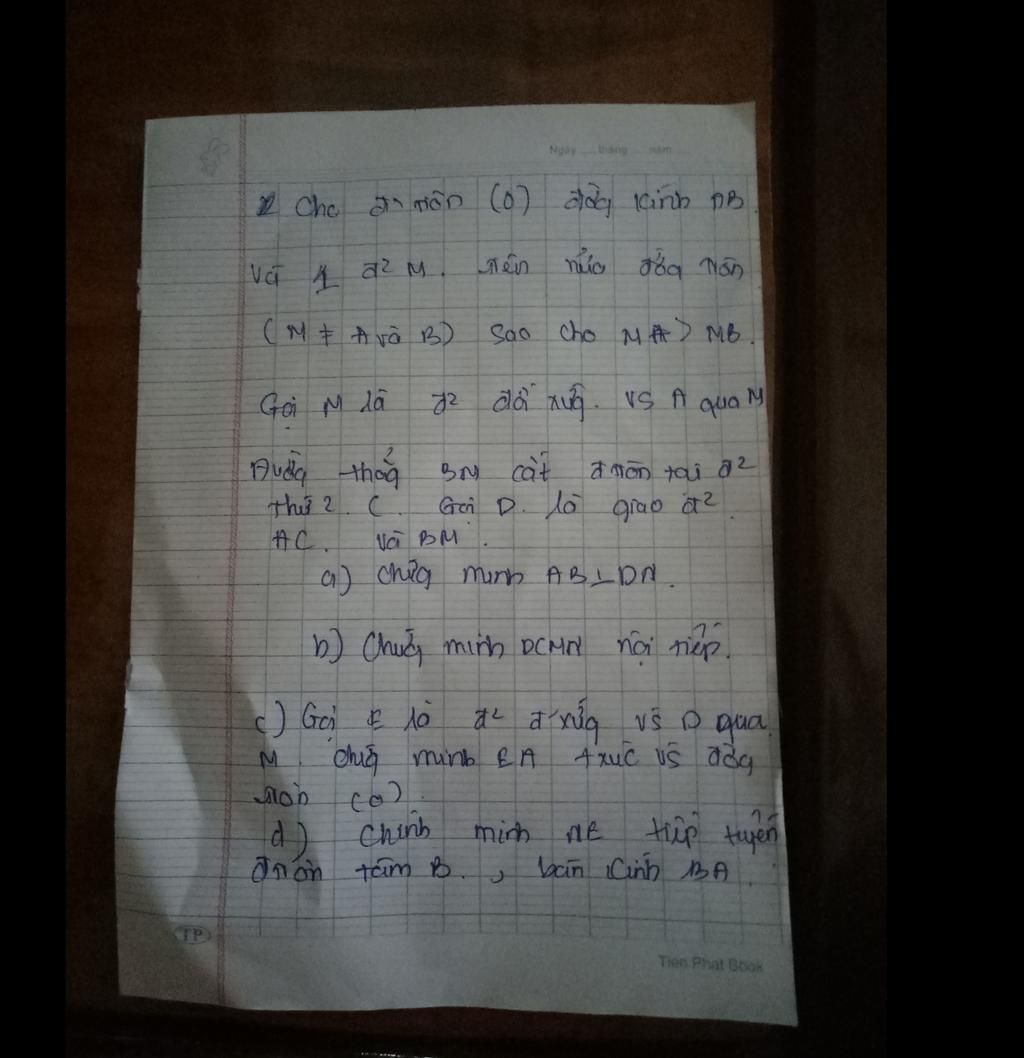 Ngày ..... tháng ..... năm .....
Cho đ' tròn (O) đờng kính AB.
Và 1 đ² M. trên nửa đờng tròn
(M ≠ A và B) sao cho MA > MB.
Gọi N là đ² đối xứng. vs A qua M
Đường thẳng BN cắt đ tròn tại đ²
thứ 2. C. Gọi D. là giao đ².
AC. và BM.
a) chứng minh AB⊥DN.
b) Chứng minh DCMN nội tiếp.
c) Gọi E là đ² đ'xứng vs D qua
M. chứng minh EA t xúc vs đờng
tròn (O).
d) Chính minh NE tiếp tuyến
đ tròn tâm B., bán kính BA.
TP
Tien Phat Book